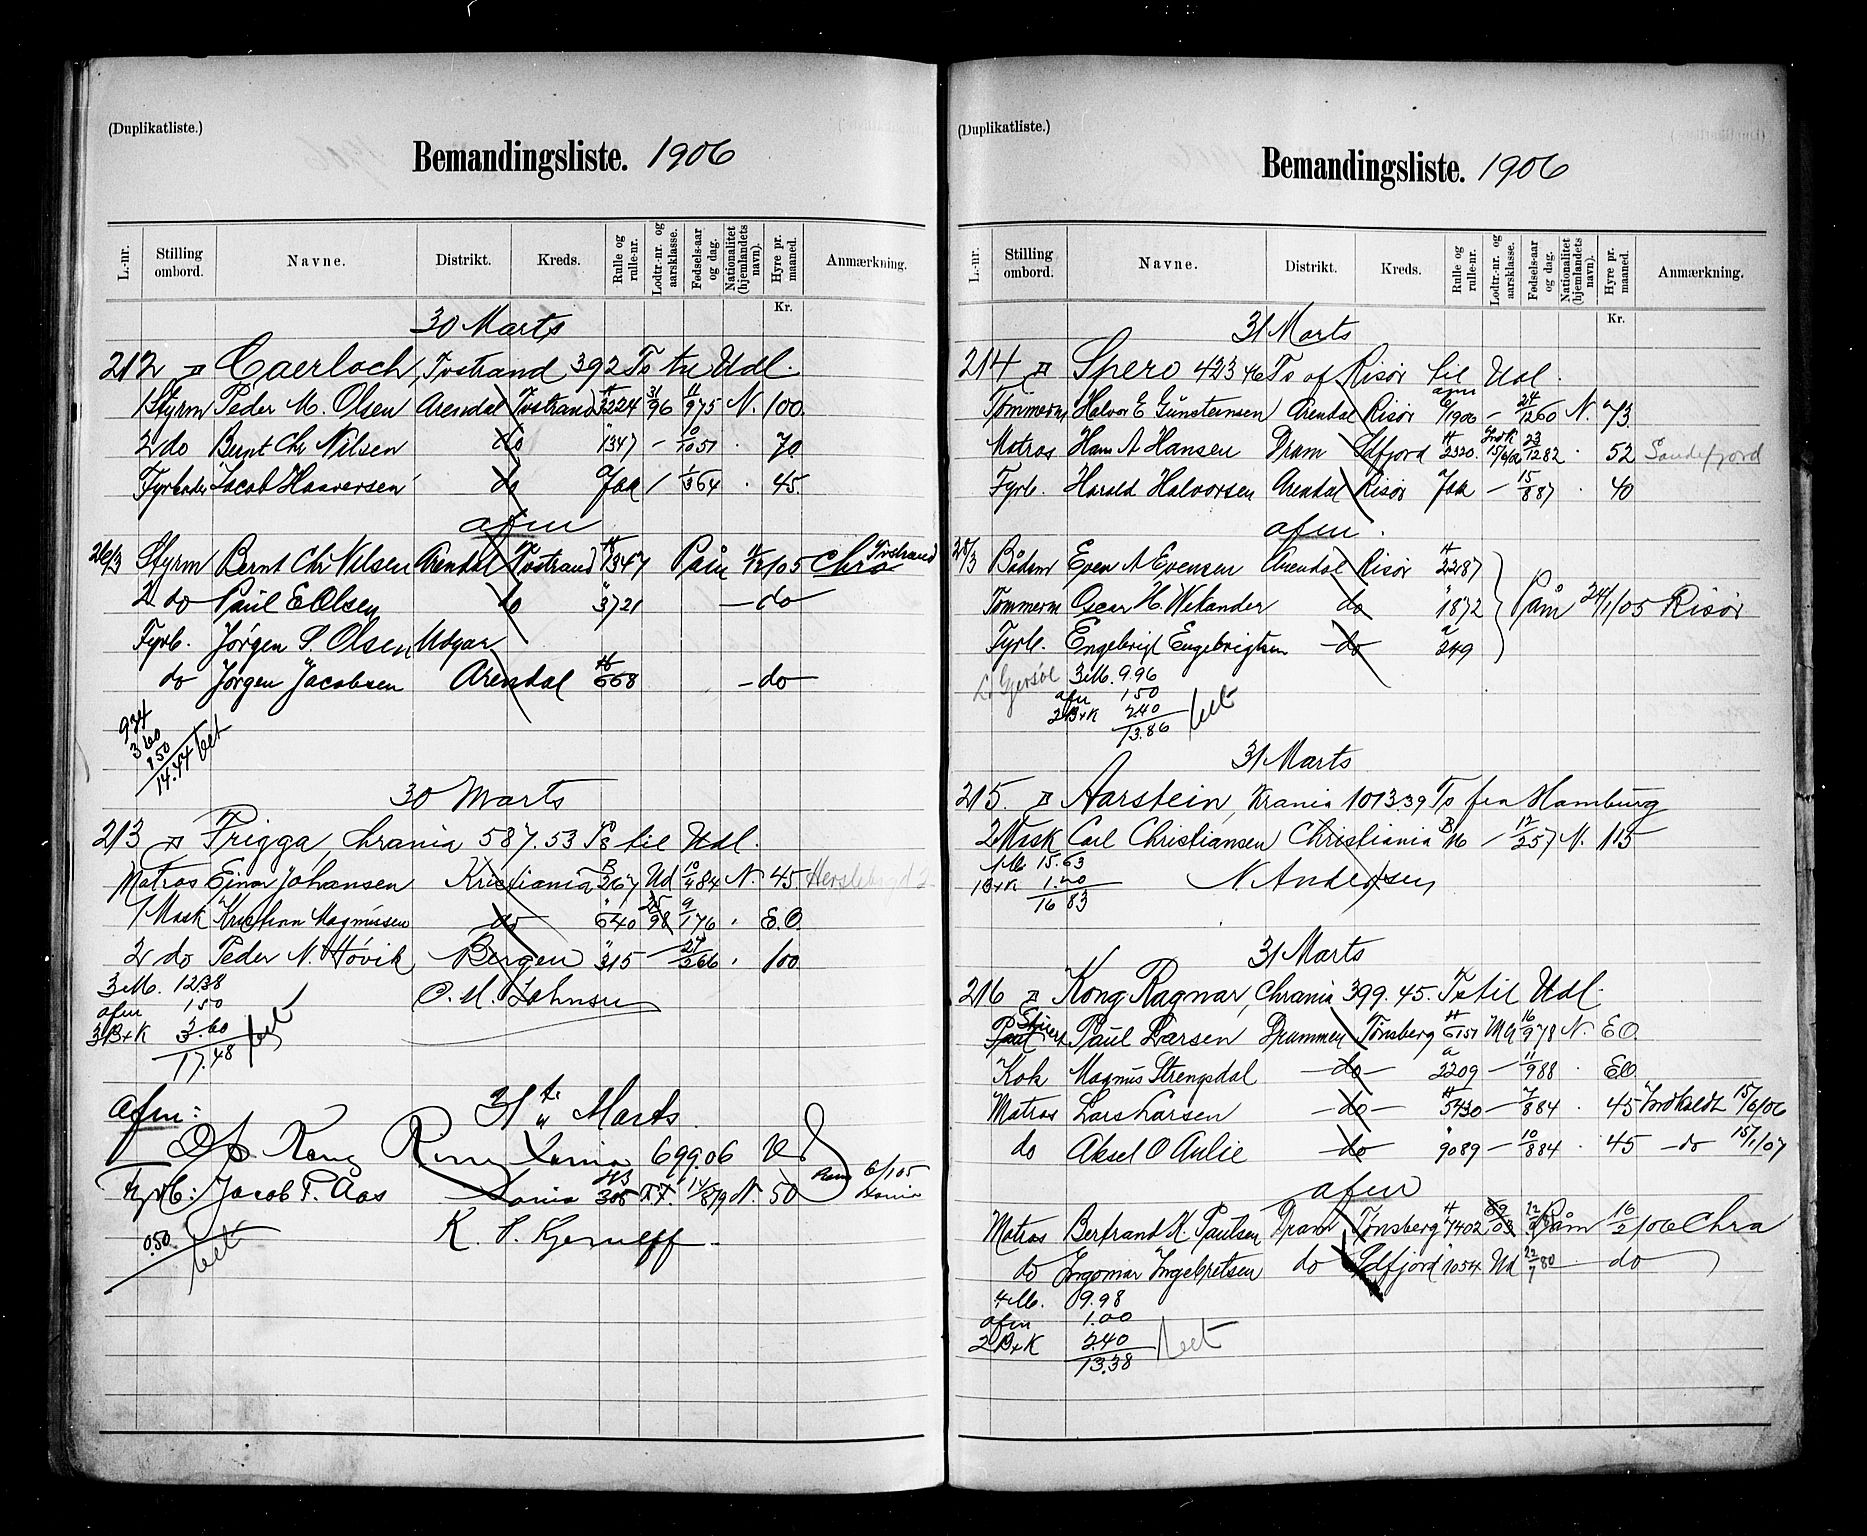 (Duplikatliste.)
Bemandingsliste. 1906
L.-nr. Stilling ombord. Navne. Distrikt. Kreds. Rulle og rulle-nr. Lodtr.-nr. og aarsklasse. Fødsels-aar og dag. Nationalitet (hjemlandets navn). Hyre pr. maaned. Anmærkning.
Kr.
30 Marts
212 Caerloch, Tvstrand 392 Ts til Udl.
1 Styrm Peder M. Olsen Arendal Tvstrand 1224 31/96 11/975 N. 100
2 do Bernt Chr Nilsen do " 1347 – 10/1051 . 70
Fyrbøder Jacob Haaversen do Jaa / 1/364 . 45
afm
26/3 Styrm Bernt Chr Nilsen Arendal Tvstrand 1347 Påm Chra Tvstrand
2 do Paul E Olsen do " 3721 – do –
Fyrb. Jørgen S. Olsen Udgar
do Jørgen Jacobsen Arendal 668 – do –
934
3 60
1 50
14.44 bet
30 Marts
213 Frigga, Chrania 587.53 Ts til Udl.
Matros Einar Johansen Kristiania 267 Ud 10/484 N. 45
1 Mask Kristian Magnussen do " 640 25/98 9/176 . E.O.
2 do Peder N. Høvik Bergen " 315 – 27/266 . 100
3 M. 12.38
afm 1.50
3 B+K 3.60
17.48 bet
C. M. Johnsen
afm: 31te Marts
Kong 699.06
Fyrb: Jacob P. Aas 305 14/879 N. 50 6/1 05
0.50 bet
(Duplikatliste.)
Bemandingsliste. 1906
L.-nr. Stilling ombord. Navne. Distrikt. Kreds. Rulle og rulle-nr. Lodtr.-nr. og aarsklasse. Fødsels-aar og dag. Nationalitet (hjemlandets navn). Hyre pr. maaned. Anmærkning.
Kr.
31 Marts
214 Spero 423 46 Ts af Risør til Udl.
Tømmerm Halvor E Gunstensen Arendal Risør 6/1906 – 24/1260 N. 73
Matros Hans A Hansen Dram Sdfjord 2320 15/6/06 23/1282 . 52 Sandefjord
Fyrb. Harald Halvorsen Arendal Risør Jaa – 15/887 . 40
afm.
28/3 Bådsm Even A Evensen Arendal Risør 2287
Tømmerm Oscar H. Wikander do " 1872 Påm 24/1/05 Risør
Fyrb. Engebrigt Engebrigtsen – do – 249
3 M. 9.96
afm 1.50
2 B+K 2.40
13.86 bet
31 Marts
215. Aarstein, Krania 1013 39 Ts fra Hamburg
2 Mask Carl Christiansen Christiania – 12/257 N. 115
1 M. 15.63
1 B+K 1.20
16 83
N. Andersen
31 Marts
216 Kong Ragnar, Chrania 399.45. Ts til Udl.
Paul Larsen Drammen Tønsberg 6151 16/978 N. E.O.
Kok Magnus Strengsdal – do – 2209 – 11/988 . E.O
Matros Lars Larsen – do – 5430 – 7/884 . 45 Indkaldt 15/6/06
do Aksel O Aulie – do – " 9089 – 10/884 . 45 – do 15/1/07
afm
Matros Bertrand K. Paulsen Dram Tønsberg 7402 Påm 16/2/06 Chra
do Ingomar Ingebretsen do Sdfjord " 1054 Ud 22/7 80 – do
4 M. 09.98
afm 1.00
2 B+K 2.40
13.38 bet